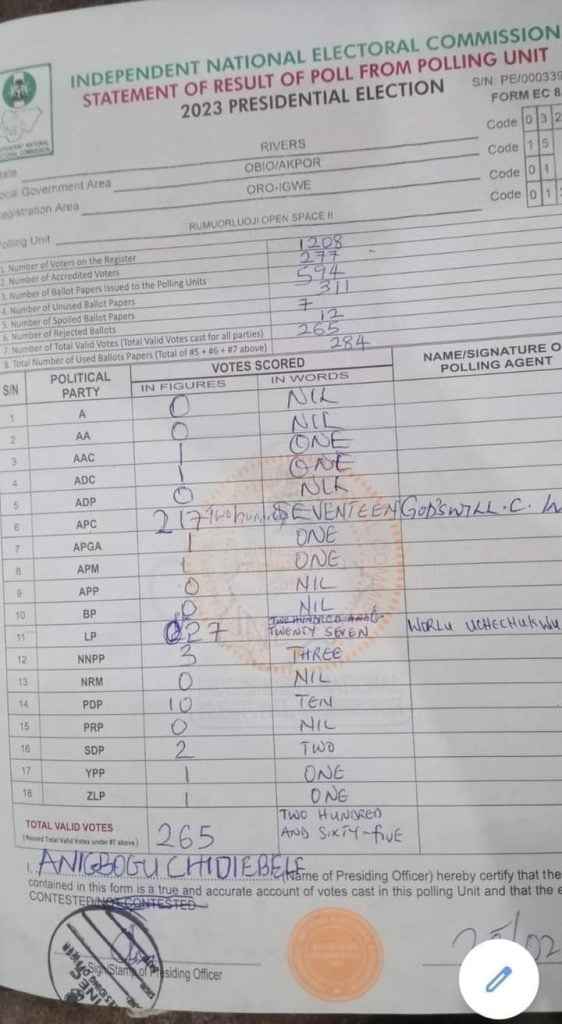 INDEPENDENT NATIONAL ELECTORAL COMMISSION
STATEMENT OF RESULT OF POLL FROM POLLING UNIT
2023 PRESIDENTIAL ELECTION
S/N: PE/000339
FORM EC 8
RIVERS Code 0 3 2
Local Government Area OBIO/AKPOR Code 1 5
Registration Area ORO-IGWE Code 0 1
Polling Unit RUMUORLUOJI OPEN SPACE II Code 0 1
1. Number of Voters on the Register 1208
2. Number of Accredited Voters 277
3. Number of Ballot Papers Issued to the Polling Units 594
4. Number of Unused Ballot Papers 311
5. Number of Spoiled Ballot Papers 7
6. Number of Rejected Ballots 12
7. Number of Total Valid Votes (Total Valid Votes cast for all parties) 265
8. Total Number of Used Ballots Papers (Total of #5 + #6 + #7 above) 284
S/N POLITICAL PARTY VOTES SCORED NAME/SIGNATURE O POLLING AGENT
IN FIGURES IN WORDS
1 A 0 NIL
2 AA 0 NIL
3 AAC 1 ONE
4 ADC 1 ONE
5 ADP 0 NIL
6 APC 217 Two hundred SEVENTEEN GOD'SWILL .C.
7 APGA 1 ONE
8 APM 1 ONE
9 APP 0 NIL
10 BP 0 NIL
11 LP 027 TWO HUNDRED AND TWENTY SEVEN WORLU UCHECHUKWU
12 NNPP 3 THREE
13 NRM 0 NIL
14 PDP 10 TEN
15 PRP 0 NIL
16 SDP 2 TWO
17 YPP 1 ONE
18 ZLP 1 ONE
TOTAL VALID VOTES 265 TWO HUNDRED AND SIXTY-FIVE
I, ANIGBOGU CHIDIEBELE (Name of Presiding Officer) hereby certify that the
contained in this form is a true and accurate account of votes cast in this polling Unit and that the e
CONTESTED/NOT CONTESTED
Sign/Stamp of Presiding Officer